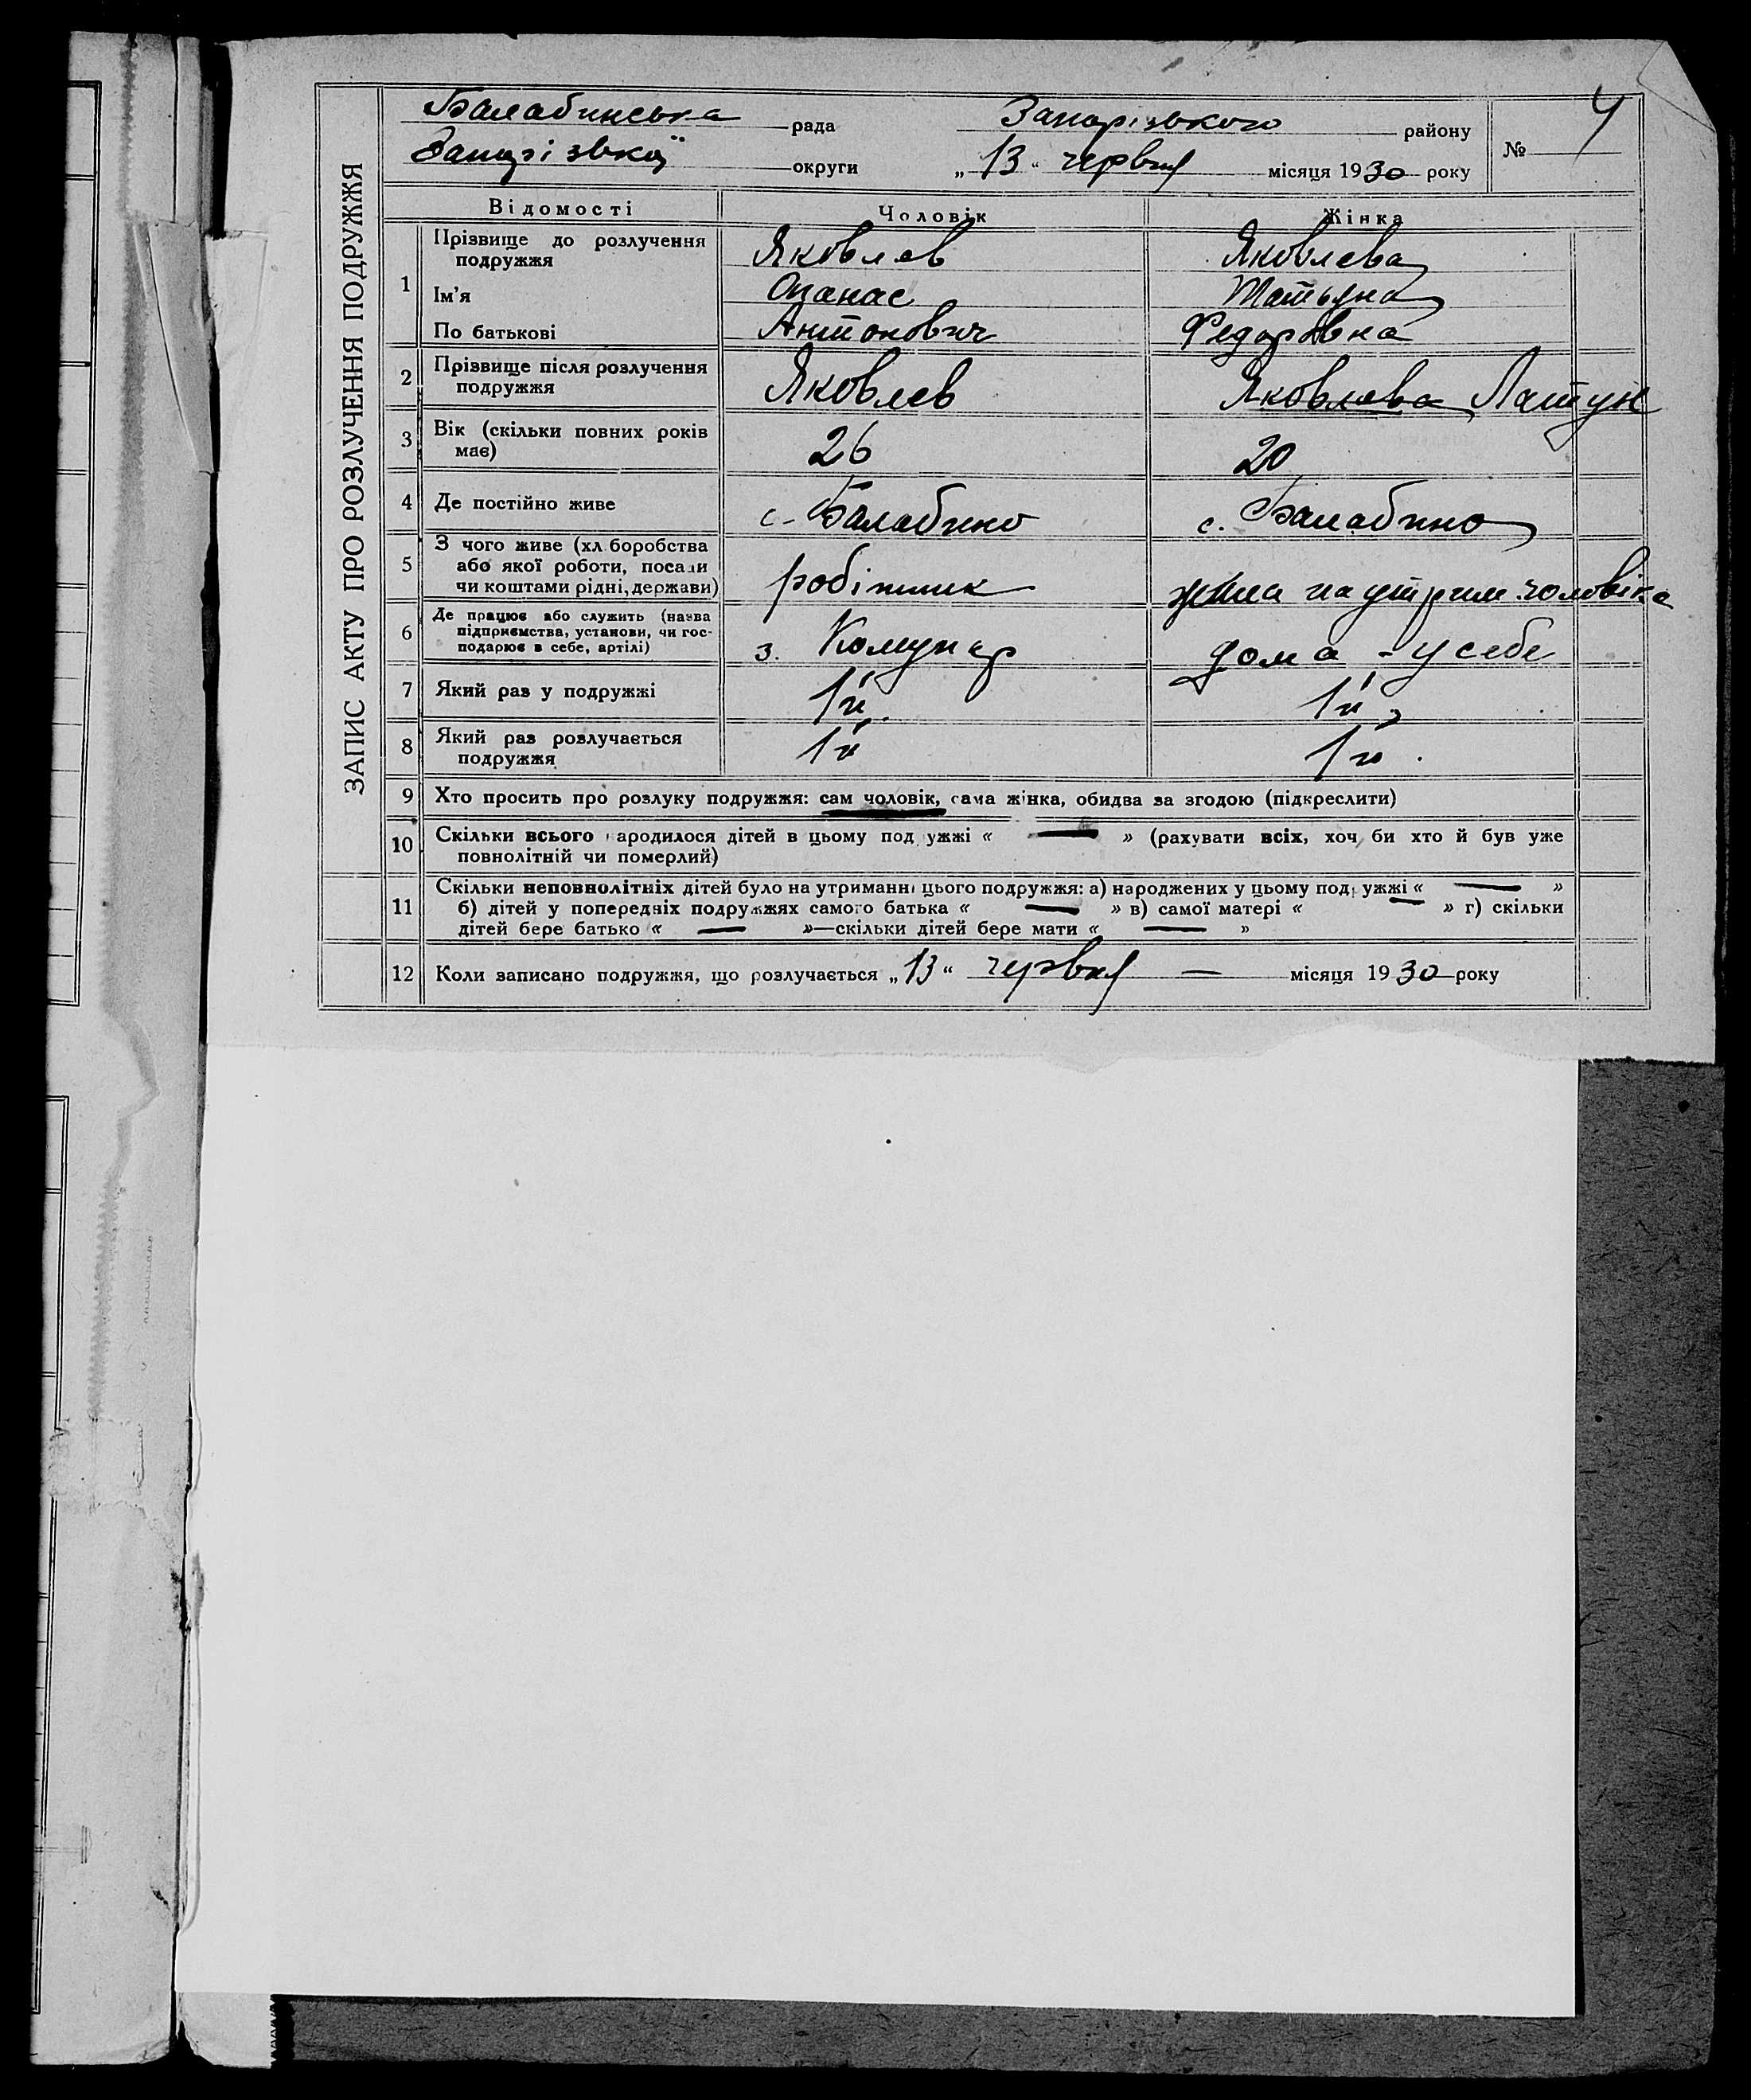 ЗАПИС АКТУ ПРО РОЗЛУЧЕННЯ ПОДРУЖЖЯ
Балабинська рада Запорізького району № 4
Запорізької округи „13“ червня місяця 1930 року
Відомості Чоловік Жінка
1 Прізвище до розлучення подружжя Яковлев Яковлева
Ім'я Опанас Татьяна
По батькові Антонович Федоровна
2 Прізвище після розлучення подружжя Яковлев Яковлева
3 Вік (скільки повних років має) 26 20
4 Де постійно живе с. Балабино с. Балабино
5 З чого живе (хл боробства
або якої роботи, посади
чи коштами рідні, держави) робітник жила на утрим. чоловіка
6 Де працює або служить (назва
підприємства, установи, чи гос-
подарює в себе, артілі) з. Комунар дома - у себе
7 Який раз у подружжі 1й 1й
8 Який раз розлучається
подружжя 1й 1й.
9 Хто просить про розлуку подружжя: сам чоловік, сама жінка, обидва за згодою (підкреслити)
10 Скільки всього народилося дітей в цьому подружжі « — » (рахувати всіх, хоч би хто й був уже
повнолітній чи померлий)
11 Скільки неповнолітніх дітей було на утриманні цього подружжя: а) народжених у цьому подружжі « — »
б) дітей у попередніх подружжях самого батька « — » в) самої матері « — » г) скільки
дітей бере батько « — »—скільки дітей бере мати « — »
12 Коли записано подружжя, що розлучається „13“ червня — місяця 1930 року